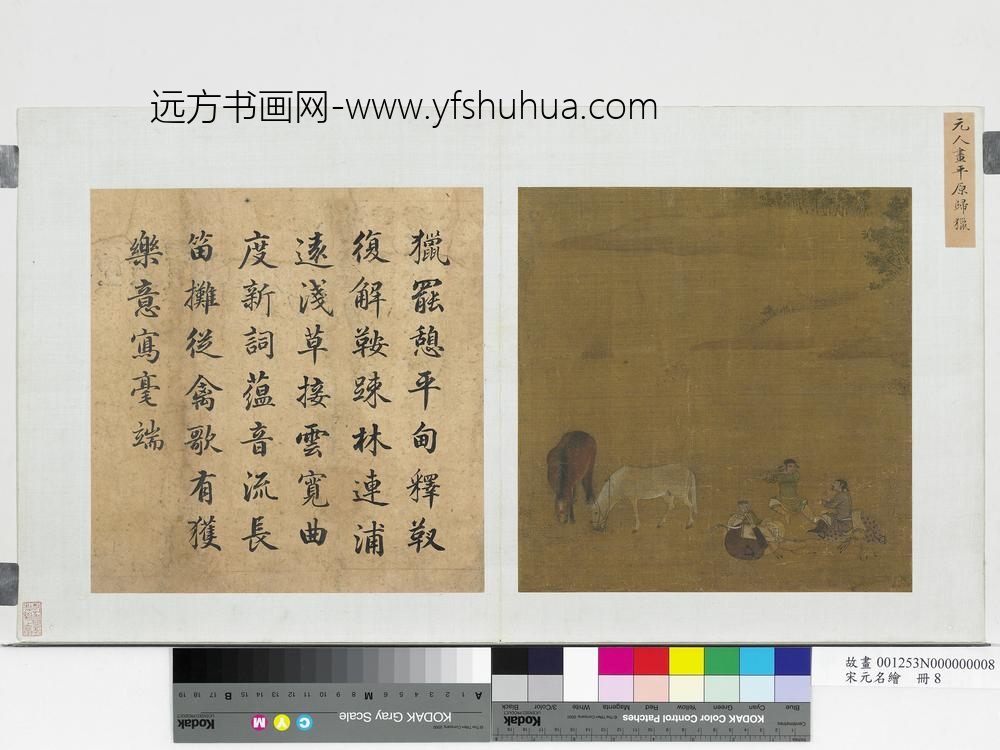 远方书画网-www.yfshuhua.com
元人畫平原歸獵
獵罷憩平甸釋㪅
復解鞍踈林連浦
遠淺草接雲寬曲
度新詞蘊音流長
笛攤從禽歌有獲
樂意寫毫端
故畫 001253N000000008
宋元名繪 冊 8
19 18 17 16 15 B 14 13 12 11 10 9 8 M 7 6 5 4 3 2 1 A
Kodak
M Y C
KODAK Gray Scale
Blue Cyan Green Yellow Red Magenta White 3/Color Black
KODAK Color Control Patches
Kodak
Centimetres